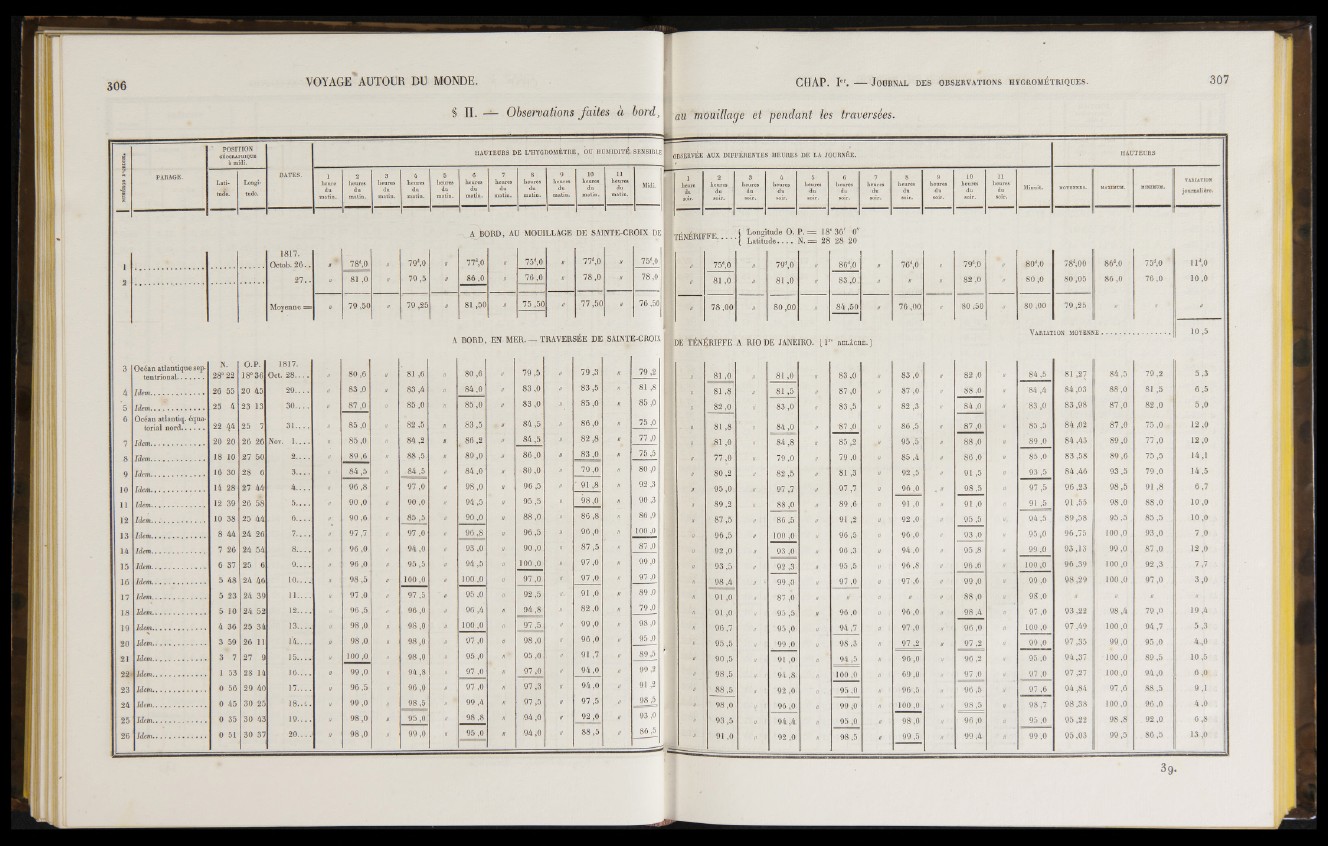 306
VOYAGE AUTOUR DU MONDE.
§ II. — Observations faites à bord,
PARAGE.
POSITION GÉOGRAPHIQUE à midi.
Lati-tude. Longi-tude.
DATES.
HAUTEURS DE L'HYGROMÈTRE, OU HUMIDITÉ SENSIBLE
1 heure du matin. 2 heures du matin. 3 heures du matin. 4 heures du matin. 5 heures du matin. 6 heures du matin. 7 heures du matin. 8 heures du matin. 9 heures du matin. 10 heures du matin. 11 heures du matin. Midi.
A BORD, AU MOUILLAGE DE SAINTE-CROIX DE
1817.
1 Octob. 26.. 〃 78d,0 〃 79d,0 〃 77d,0 〃 75d,0 〃 77d,0 〃 75d,0
2 27.. 〃 81 ,0 〃 79 ,5 〃 86 ,0 〃 76 ,0 〃 78 ,0 〃 78 ,0
Moyenne = 〃 79 ,50 〃 79 ,25 〃 81 ,50 〃 75 ,50 〃 77 ,50 〃 76 ,50
A BORD, EN MER. — TRAVERSÉE DE SAINTE-CROIX
N. O.P. 1817.
3 Océan atlantique septentrional 28° 22 18° 36 Oct. 28.... 〃 80 ,6 〃 81 ,6 〃 80 ,6 〃 79 ,5 〃 79 ,3 〃 79 ,2
4 Idem 26 55 20 45 29.... 〃 83 ,0 〃 83 ,4 〃 84 ,0 〃 83 ,0 〃 83 ,5 〃 81 ,8
5 Idem 25 4 23 13 30.... 〃 87 ,0 〃 85 ,0 〃 85 ,0 〃 83 ,0 〃 85 ,0 〃 85 ,0
6 Océan atlantiq. équatorial nord 22 44 25 7 31.... 〃 85 ,0 〃 82 ,5 〃 83 ,5 〃 84 ,5 〃 86 ,0 〃 75 ,0
7 Idem 20 20 26 26 Nov. 1.... 〃 85 ,0 〃 84 ,2 〃 86 ,2 〃 84 ,5 〃 82 ,8 〃 77 ,0
8 Idem 18 16 27 50 2.... 〃 89 ,6 〃 88 ,5 〃 89 ,0 〃 86 ,0 〃 83 ,0 〃 75 ,5
9 Idem 16 30 28 6 3.... 〃 84 ,5 〃 84 ,5 〃 84 ,0 〃 80 ,0 〃 79 ,0 〃 80 ,0
10 Idem 14 28 27 44 4.... 〃 96 ,8 〃 97 ,0 〃 98 ,0 〃 96 ,5 〃 91 ,8 〃 92 ,3
11 Idem 12 39 26 58 5.... 〃 90 ,0 〃 90 ,0 〃 94 ,5 〃 95 ,5 〃 98 ,0 〃 96 ,3
12 Idem 10 38 25 44 6.... 〃 90 ,6 〃 85 ,5 〃 90 ,0 〃 88 ,0 〃 86 ,8 〃 86 ,0
13 Idem 8 44 24 26 7.... 〃 97 ,7 〃 97 ,0 〃 96 ,8 〃 96 ,5 〃 96 ,0 〃 100 ,0
14 Idem 7 26 24 54 8.... 〃 96 ,0 〃 94 ,0 〃 93 ,0 〃 90 ,0 〃 87 ,5 〃 87 ,0
15 Idem 6 37 25 6 9.... 〃 96 ,0 〃 95 ,5 〃 94 ,5 〃 100 ,0 〃 97 ,0 〃 99 ,0
16 Idem 5 48 24 46 10.... 〃 98 ,5 〃 100 ,0 〃 100 ,0 〃 97 ,0 〃 97 ,0 〃 97 ,0
17 Idem 5 23 24 39 11.... 〃 97 ,0 〃 97 ,5 〃 95 ,0 〃 92 ,5 〃 91 ,0 〃 89 ,0
18 Idem 5 10 24 52 12.... 〃 96 ,5 〃 96 ,0 〃 96 ,4 〃 94 ,8 〃 82 ,0 〃 79 ,0
19 Idem 4 36 25 34 13.... 〃 98 ,0 〃 98 ,0 〃 100 ,0 〃 97 ,5 〃 99 ,0 〃 98 ,0
20 Idem 3 59 26 11 14.... 〃 98 ,0 〃 98 ,0 〃 97 ,0 〃 98 ,0 〃 96 ,0 〃 95 ,0
21 Idem 3 7 27 9 15.... 〃 100 ,0 〃 98 ,0 〃 95 ,0 〃 95 ,0 〃 91 ,7 〃 89 ,5
22 Idem 1 53 28 14 16.... 〃 99 ,0 〃 94 ,8 〃 97 ,0 〃 97 ,0 〃 94 ,0 〃 99 ,2
23 Idem 0 56 29 40 17.... 〃 96 ,5 〃 96 ,0 〃 97 ,0 〃 97 ,3 〃 94 ,0 〃 91 ,2
24 Idem 0 45 30 25 18.... 〃 99 ,0 〃 98 ,5 〃 99 ,4 〃 97 ,5 〃 97 ,5 〃 98 ,5
25 Idem 0 35 30 43 19.... 〃 98 ,0 〃 95 ,0 〃 98 ,8 〃 94 ,0 〃 92 ,0 〃 93 ,0
26 Idem 0 51 30 37 20.... 〃 98 ,0 〃 99 ,0 〃 95 ,0 〃 94 ,0 〃 88 ,5 〃 86 ,5
CHAP. Ier. — JOURNAL DES OBSERVATIONS HYGROMÉTRIQUES.
307
au mouillage et pendant les traversées.
OBSERVÉE AUX DIFFÉRENTES HEURES DE LA JOURNÉE.
HAUTEURS
1 heure du soir. 2 heures du soir. 3 heures du soir. 4 heures du soir. 5 heures du soir. 6 heures du soir. 7 heures du soir. 8 heures du soir. 9 heures du soir. 10 heures du soir. 11 heures du soir. Minuit. MOYENNES. MAXIMUM. MINIMUM. VARIATION journalière.
TÉNÉRIFFE..... { Longitude O. P. = 18° 36′ 0″
Latitude.... N. = 28 28 20
〃 75d,0 〃 79d,0 〃 86d,0 〃 76d,0 〃 79d,0 〃 80d,0 78d,00 86d,0 75d,0 11d,0
〃 81 ,0 〃 81 ,0 〃 83 ,0 〃 〃 〃 82 ,0 〃 80 ,0 80 ,05 86 ,0 76 ,0 10 ,0
〃 78 ,00 〃 80 ,00 〃 84 ,50 〃 76 ,00 〃 80 ,50 〃 80 ,00 79 ,25 〃 〃 〃
VARIATION MOYENNE............ 10 ,5
DE TÉNÉRIFFE A RIO DE JANEIRO. [1re RELÂCHE.]
〃 81 ,0 〃 81 ,0 〃 83 ,0 〃 83 ,0 〃 82 ,0 〃 84 ,5 81 ,27 84 ,5 79 ,2 5 ,3
〃 81 ,8 〃 81 ,5 〃 87 ,0 〃 87 ,0 〃 88 ,0 〃 84 ,4 84 ,03 88 ,0 81 ,5 6 ,5
〃 82 ,0 〃 83 ,0 〃 83 ,5 〃 82 ,3 〃 84 ,0 〃 83 ,0 83 ,98 87 ,0 82 ,0 5 ,0
〃 81 ,8 〃 84 ,0 〃 87 ,0 〃 86 ,5 〃 87 ,0 〃 85 ,5 84 ,02 87 ,0 75 ,0 12 ,0
〃 81 ,0 〃 84 ,8 〃 85 ,2 〃 95 ,5 〃 88 ,0 〃 89 ,0 84 ,45 89 ,0 77 ,0 12 ,0
〃 77 ,0 〃 79 ,0 〃 79 ,0 〃 85 ,4 〃 86 ,0 〃 85 ,0 83 ,58 89 ,6 75 ,5 14 ,1
〃 80 ,2 〃 82 ,5 〃 81 ,3 〃 92 ,5 〃 91 ,5 〃 93 ,5 84 ,46 93 ,5 79 ,0 14 ,5
〃 95 ,0 〃 97 ,7 〃 97 ,7 〃 96 ,0 〃 98 ,5 〃 97 ,5 96 ,23 98 ,5 91 ,8 6 ,7
〃 89 ,2 〃 88 ,0 〃 89 ,6 〃 91 ,0 〃 91 ,0 〃 91 ,5 91 ,55 98 ,0 88 ,0 10 ,0
〃 87 ,5 〃 86 ,5 〃 91 ,2 〃 92 ,0 〃 95 ,5 〃 94 ,5 89 ,58 95 ,5 85 ,5 10 ,0
〃 96 ,5 〃 100 ,0 〃 96 ,5 〃 96 ,0 〃 93 ,0 〃 95 ,0 96 ,75 100 ,0 93 ,0 7 ,0
〃 92 ,0 〃 93 ,0 〃 96 ,3 〃 94 ,0 〃 95 ,8 〃 99 ,0 93 ,13 99 ,0 87 ,0 12 ,0
〃 93 ,5 〃 92 ,3 〃 95 ,5 〃 96 ,8 〃 96 ,6 〃 100 ,0 96 ,39 100 ,0 92 ,3 7 ,7
〃 98 ,4 〃 99 ,0 〃 97 ,0 〃 97 ,6 〃 99 ,0 〃 99 ,0 98 ,29 100 ,0 97 ,0 3 ,0
〃 91 ,0 〃 87 ,0 〃 〃 〃 〃 〃 88 ,0 〃 98 ,0 〃 〃 〃 〃
〃 91 ,0 〃 95 ,5 〃 96 ,0 〃 96 ,0 〃 98 ,4 〃 97 ,0 93 ,22 98 ,4 79 ,0 19 ,4
〃 96 ,7 〃 95 ,0 〃 94 ,7 〃 97 ,0 〃 96 ,0 〃 100 ,0 97 ,49 100 ,0 94 ,7 5 ,3
〃 95 ,5 〃 99 ,0 〃 98 ,3 〃 97 ,2 〃 97 ,2 〃 99 ,0 97 ,35 99 ,0 95 ,0 4 ,0
〃 90 ,5 〃 91 ,0 〃 94 ,5 〃 96 ,0 〃 96 ,2 〃 95 ,0 94 ,37 100 ,0 89 ,5 10 ,5
〃 98 ,5 〃 94 ,8 〃 100 ,0 〃 69 ,0 〃 97 ,0 〃 97 ,0 97 ,27 100 ,0 94 ,0 6 ,0
〃 88 ,5 〃 92 ,0 〃 95 ,0 〃 96 ,5 〃 96 ,5 〃 97 ,6 94 ,84 97 ,6 88 ,5 9 ,1
〃 98 ,0 〃 96 ,0 〃 99 ,0 〃 100 ,0 〃 98 ,5 〃 98 ,7 98 ,38 100 ,0 96 ,0 4 ,0
〃 93 ,5 〃 94 ,4 〃 95 ,0 〃 98 ,0 〃 96 ,0 〃 95 ,0 95 ,22 98 ,8 92 ,0 6 ,8
〃 91 ,0 〃 92 ,0 〃 98 ,5 〃 99 ,5 〃 99 ,4 〃 99 ,0 95 ,03 99 ,5 86 ,5 13 ,0
39.